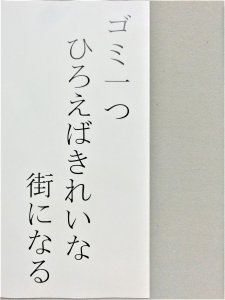 ゴミ一つ
ひろえばきれいな
街になる